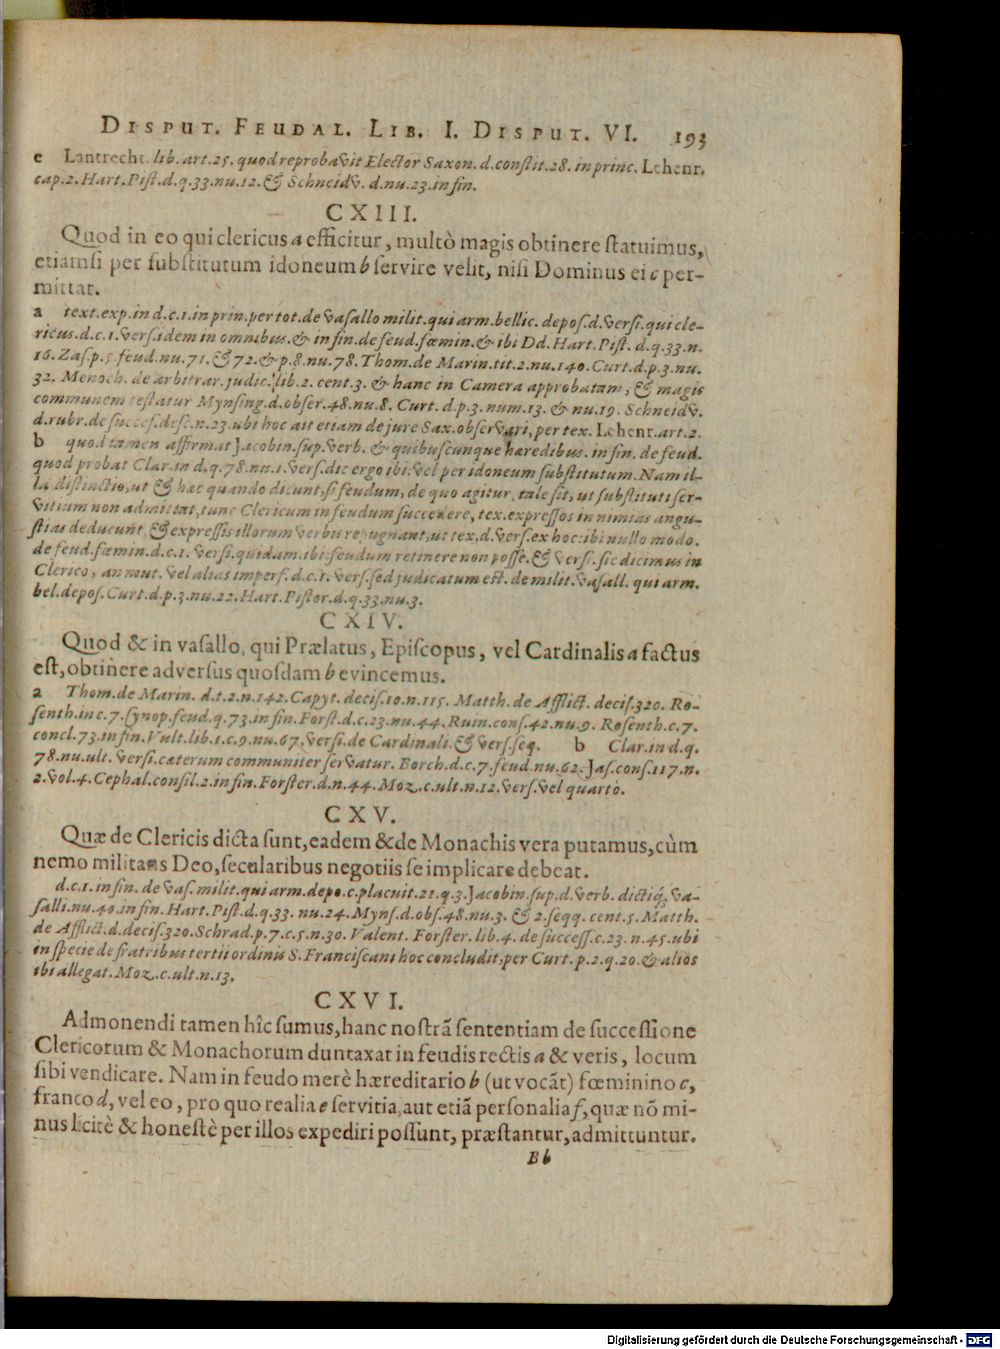 DISPUT. FEUDAL. LIB. I. DISPUT. VI. 193
e Lantrecht. lib. art. 25. quod reprobavit Elector Saxon. d. constit. 28. in princ. Lehenr.
cap. 2. Hart. Pist. d. q. 33. nu. 12. & Schneidv. d. nu. 23. in fin.
CXIII.
Quod in eo qui clericus a efficitur, multò magis obtinere statuimus,
etiamsi per substitutum idoneum b servire velit, nisi Dominus ei c per-
mittat.
a text. exp. in d. c. 1. in prin. per tot. de vasallo milit. qui arm. bellic. depos. d. versi. qui cle-
ricus. d. c. 1. vers. idem in omnibus. & in fin. de feud. fœmin. & ibi Dd. Hart. Pist. d. q. 33. n.
16. Zas. p. 5. feud. nu. 71. & 72. & p. 8. nu. 78. Thom. de Marin. tit. 2. nu. 140. Curt. d. p. 3. nu.
32. Menoch. de arbitrar. judic. lib. 2. cent. 3. & hanc in Camera approbatam, & magis
communem testatur Mynsing. d. obser. 48. nu. 8. Curt. d. p. 3. num. 13. & nu. 19. Schneidv.
d. rubr. de succes. desc. n. 23. ubi hoc ait etiam de jure Sax. observari, per tex. Lehenr. art. 2.
b quod tamen affirmat Jacobin. sup. verb. & quibuscunque hæredibus. in fin. de feud.
quod probat Clar. in d. q. 78. nu. 1. vers. dic ergo ibi: vel per idoneum substitutum. Nam il-
la distinctio, ut & hæc quando dicunt, si feudum, de quo agitur, tale sit, ut substituti ser-
vitium non admittat, tunc Clericum in feudum succedere, tex. expressos in nimias angu-
stias deducunt, & expressis illorum verbis repugnant, ut tex. d. vers. ex hoc: ibi nullo modo.
de feud. fœmin. d. c. 1. versi. quidam. ibi: feudum retinere non posse. & vers. sic dicimus in
Clerico, an mut. vel alias imperf. d. c. 1. vers. sed judicatum est. de milit. vasall. qui arm.
bel. depos. Curt. d. p. 3. nu. 22. Hart. Pistor. d. q. 33. nu. 3.
CXIV.
Quod & in vasallo, qui Prælatus, Episcopus, vel Cardinalis a factus
est, obtinere adversus quosdam b evincemus.
a Thom. de Marin. d. t. 2. n. 142. Capyt. decis. 10. n. 115. Matth. de Afflict. decis. 320. Ro-
senth. in c. 7. synop. feud. q. 73. in fin. Forst. d. c. 23. nu. 44. Ruin. cons. 42. nu. 9. Rosenth. c. 7.
concl. 73. in fin. Vult. lib. 1. c. 9. nu. 67. versi. de Cardinali. & vers. seq. b Clar. in d. q.
78. nu. ult. versi. cæterum communiter servatur. Borch. d. c. 7. feud. nu. 62. Jas. cons. 117. n.
2. vol. 4. Cephal. consil. 2. in fin. Forster. d. n. 44. Moz. c. ult. n. 12. vers. vel quarto.
CXV.
Quæ de Clericis dicta sunt, eadem & de Monachis vera putamus, cùm
nemo militans Deo, secularibus negotiis se implicare debeat.
d. c. 1. in fin. de vas. milit. qui arm. depo. c. placuit. 21. q. 3. Jacobin. sup. d. verb. dictiq́; va-
salli. nu. 40. in fin. Hart. Pist. d. q. 33. nu. 24. Myns. d. obs. 48. nu. 3. & 2. seqq. cent. 5. Matth.
de Afflict. d. decis. 320. Schrad. p. 7. c. 5. n. 30. Valent. Forster. lib. 4. de success. c. 23. n. 45. ubi
in specie de fratribus tertii ordinis S. Franciscani hoc concludit, per Curt. p. 2. q. 20. & alios
ibi allegat. Moz. c. ult. n. 13.
CXVI.
Admonendi tamen hîc sumus, hanc nostrã sententiam de successione
Clericorum & Monachorum duntaxat in feudis rectis a & veris, locum
sibi vendicare. Nam in feudo merè hæreditario b (ut vocãt) fœminino c,
franco d, vel eo, pro quo realia e servitia, aut etiã personalia f, quæ nõ mi-
nus licitè & honestè per illos expediri possunt, præstantur, admittuntur.
Bb
Digitalisierung gefördert durch die Deutsche Forschungsgemeinschaft - DFG